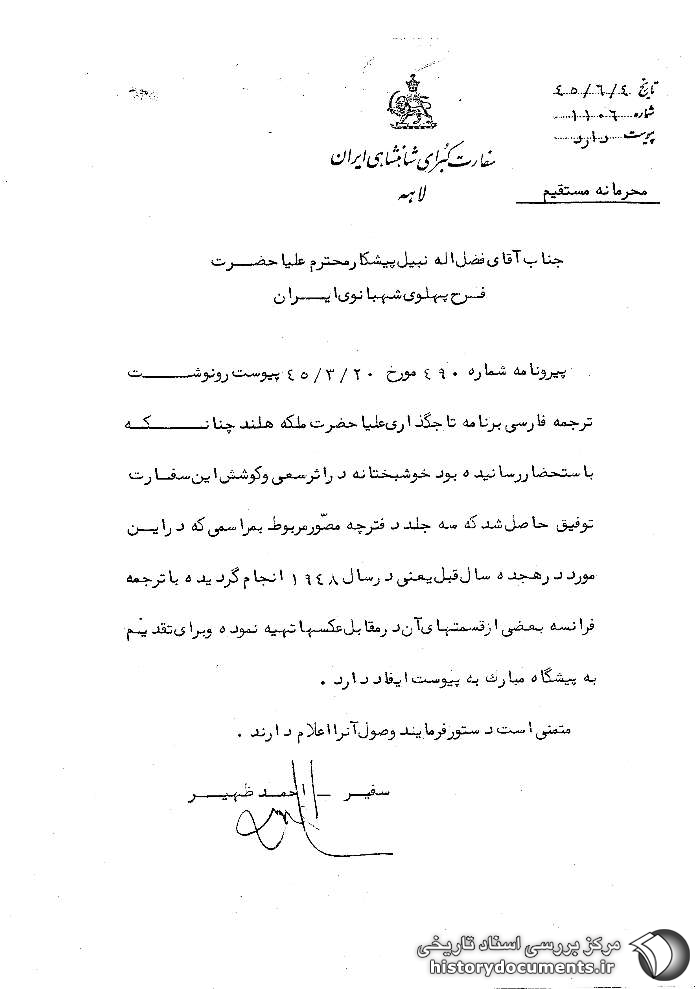 تاریخ ۴۵/٦/٤
شماره ۱۱۰٦
پیوست دارد
سفارت کبرای شاهنشاهی ایران
لاهه
محرمانه مستقیم
جناب آقای فضل اله نبیل پیشکار محترم علیا حضرت
فرح پهلوی شهبانوی ایران
پیرو نامه شماره ٤۹۰ مورخ ٤۵/۳/۲۰ پیوست رونوشت
ترجمه فارسی برنامه تاجگذاری علیا حضرت ملکه هلند چنانکه
باستحضار رسانیده بود خوشبختانه در اثر سعی و کوشش این سفارت
توفیق حاصل شد که سه جلد دفترچه مصّور مربوط بمراسمی که در این
مورد در هجده سال قبل یعنی در سال ۱۹٤۸ انجام گردیده با ترجمه
فرانسه بعضی از قسمتهای آن در مقابل عکسها تهیه نموده و برای تقدیم
به پیشگاه مبارک به پیوست ایفاد دارد .
متمنی است دستور فرمایند وصول آنرا اعلام دارند .
سفیر ـ احمد ظهیر
مرکز بررسی اسناد تاریخی
historydocuments.ir